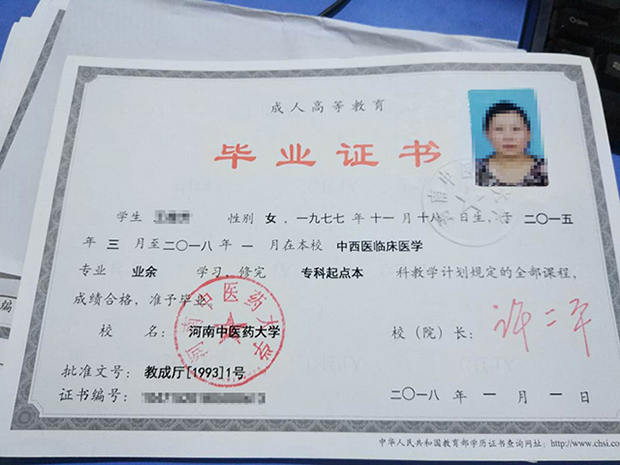 成人高等教育
毕业证书
学生 性别 女，一九七七年十一月十八日生，于二〇一五
年三月至二〇一八年一月在本校 中西医临床医学
专业 业余 学习，修完 专科起点本 科教学计划规定的全部课程，
成绩合格，准予毕业。
校 名：河南中医药大学 校（院）长：许二平
批准文号：教成厅[1993]1号
证书编号： 二〇一八年一月一日
中华人民共和国教育部学历证书查询网址：http://www.chsi.co
河南中医药大学
Ctrl
编